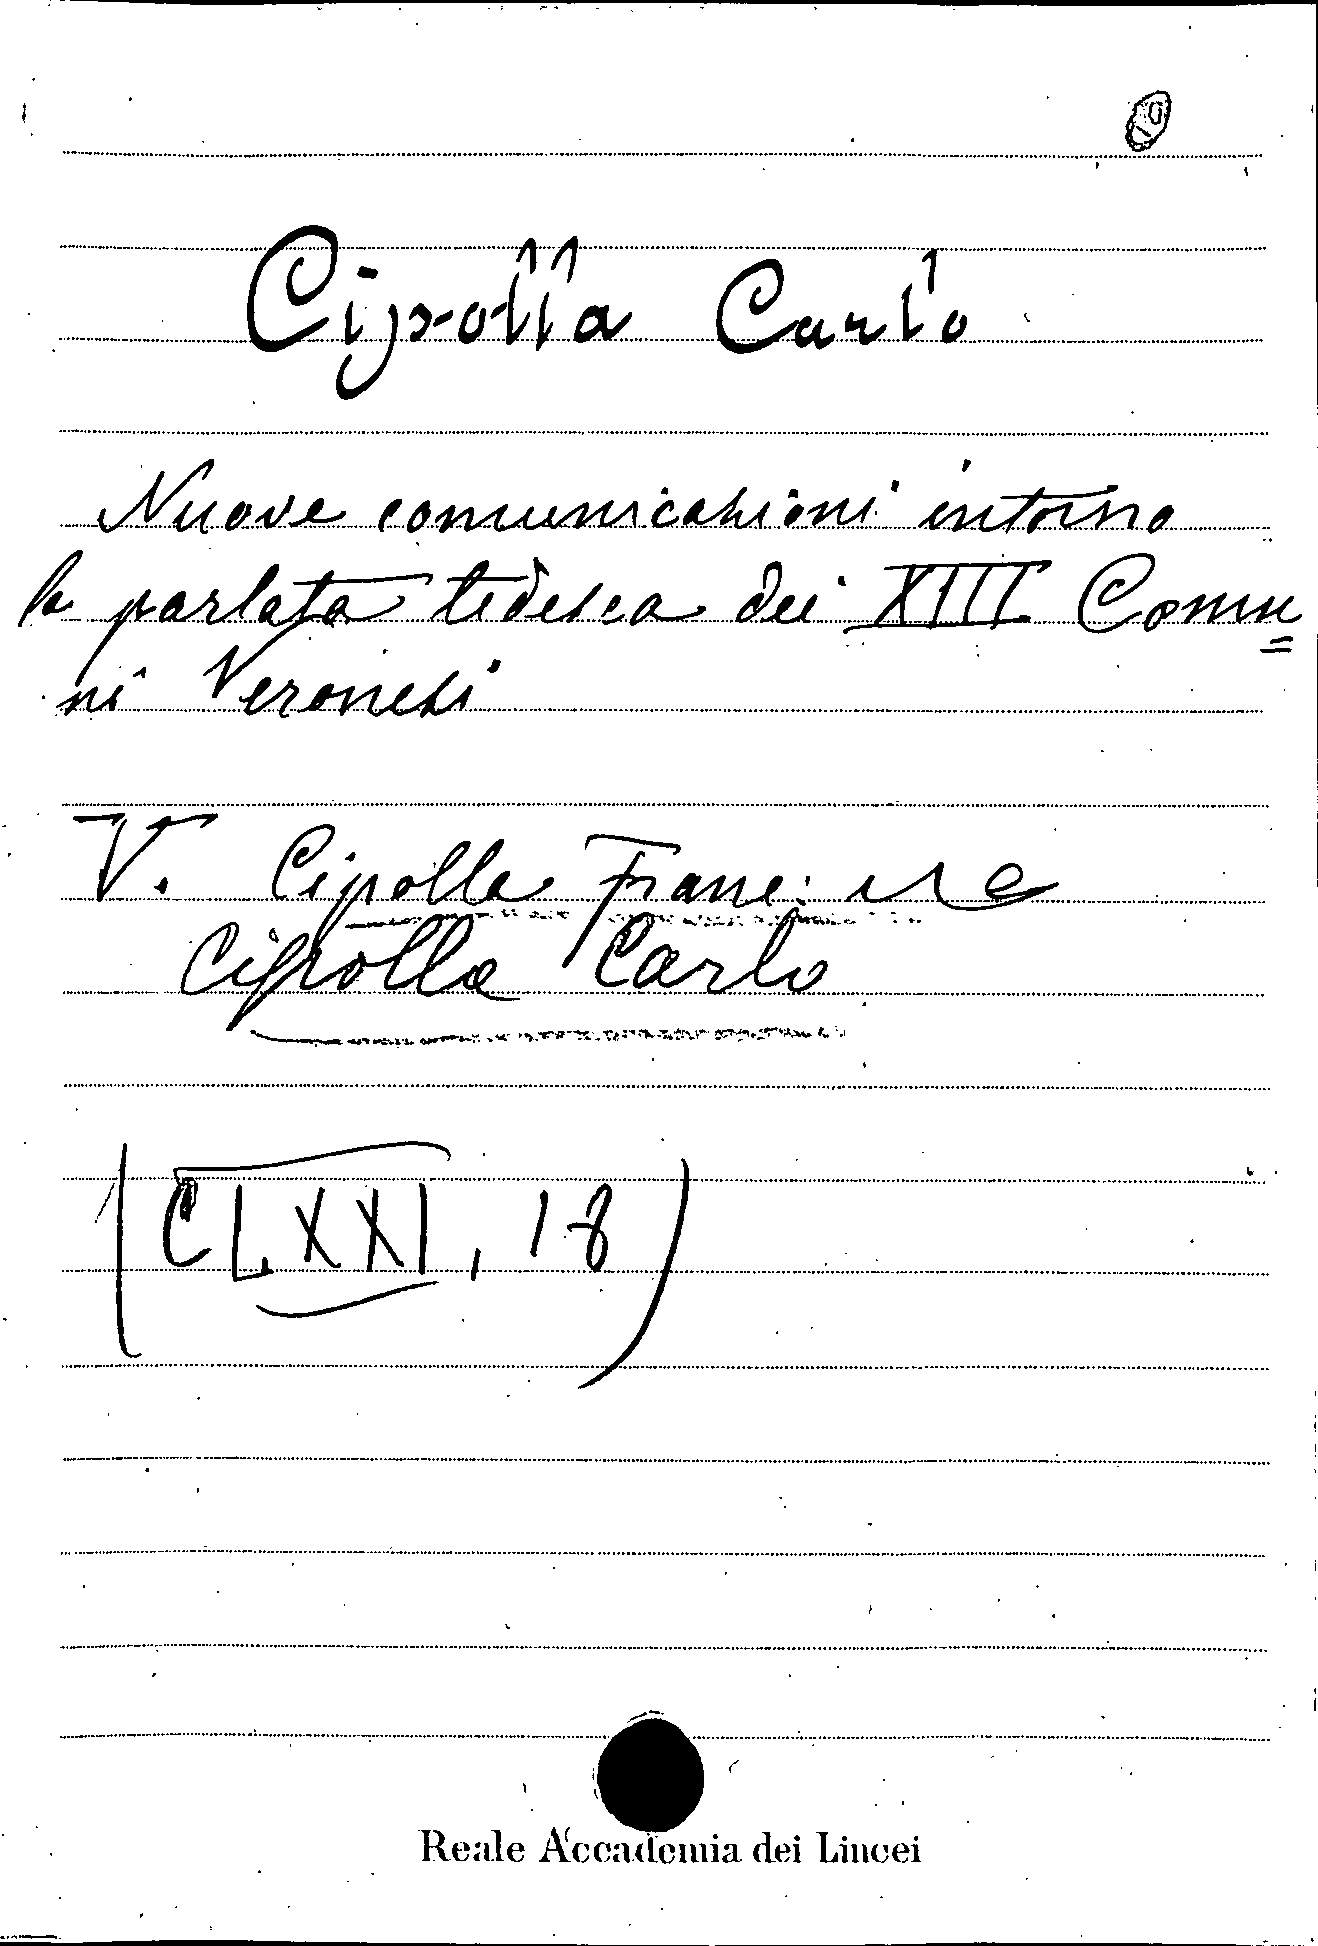 10
Cipolla Carlo
Nuove comunicazioni intorno
la parlata tedesca dei XIII Comu=
ni Veronesi
V. Cipolla Franc: e
Cipolla Carlo
(CLXXI, 18)
Reale Accademia dei Lincei